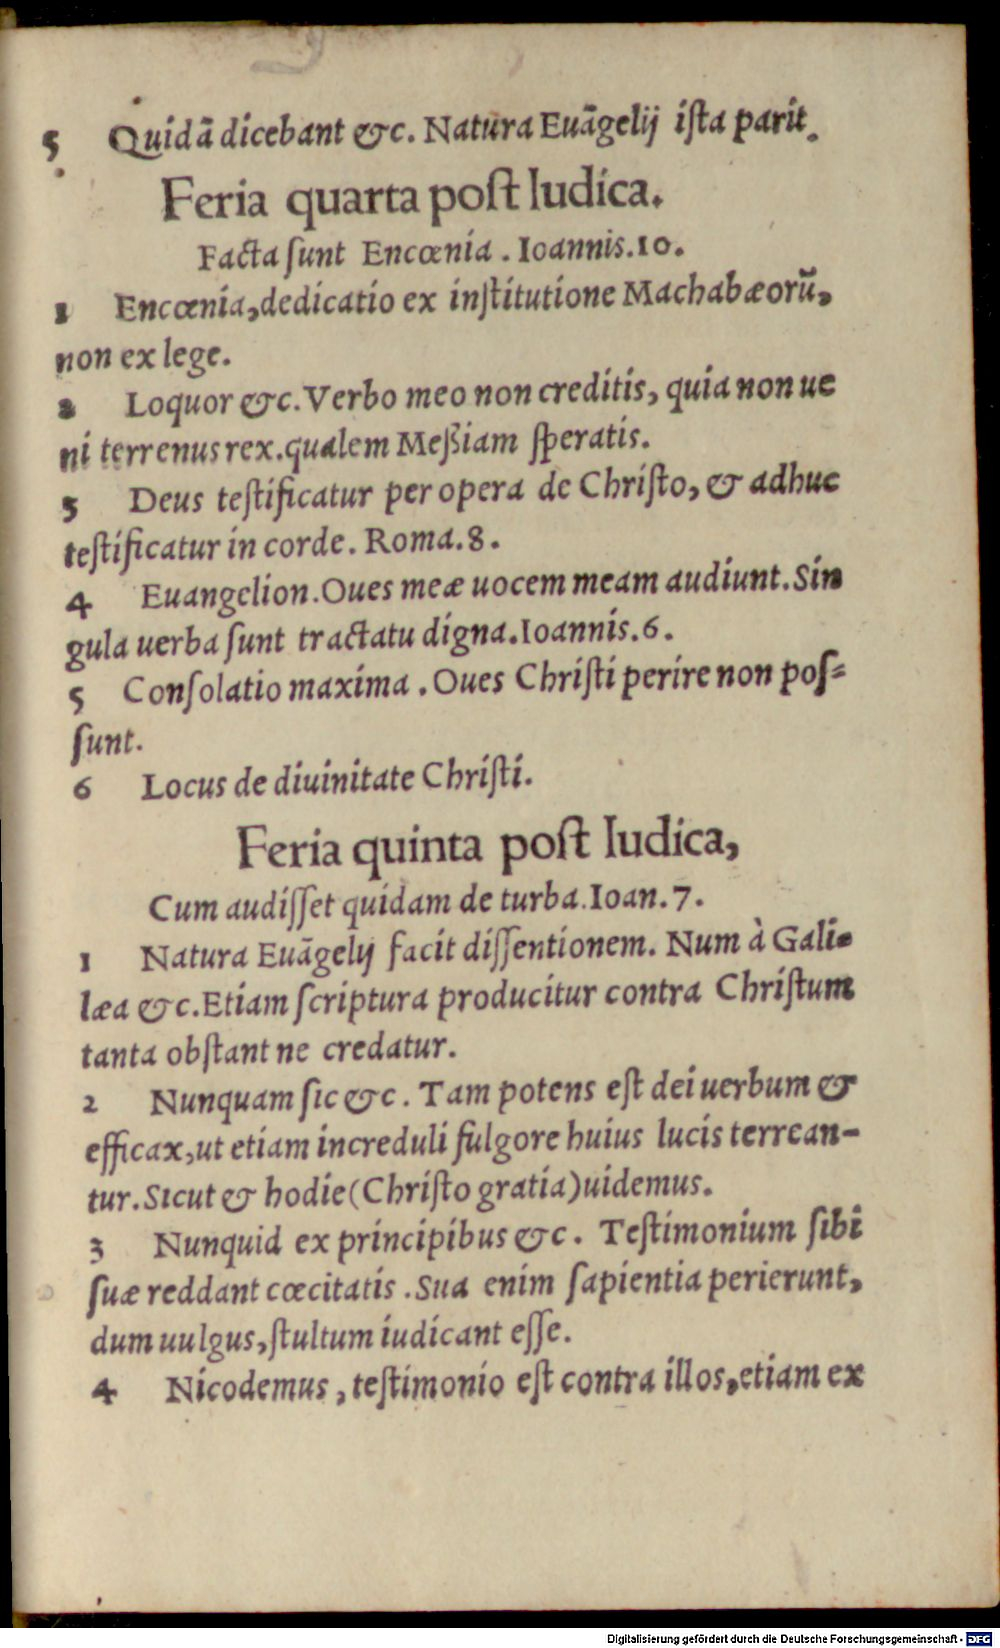 5 Quidā dicebant &c. Natura Euāgelij ista parit.
Feria quarta post Iudica.
Facta sunt Encœnia. Ioannis.10.
1 Encœnia, dedicatio ex institutione Machabæorū,
non ex lege.
2 Loquor &c. Verbo meo non creditis, quia non ue
ni terrenus rex. qualem Meßiam speratis.
3 Deus testificatur per opera de Christo, & adhuc
testificatur in corde. Roma.8.
4 Euangelion. Oues meæ uocem meam audiunt. Sin
gula uerba sunt tractatu digna. Ioannis.6.
5 Consolatio maxima. Oues Christi perire non pos=
sunt.
6 Locus de diuinitate Christi.
Feria quinta post Iudica,
Cum audisset quidam de turba. Ioan.7.
1 Natura Euāgelij facit dissentionem. Num à Gali=
læa &c. Etiam scriptura producitur contra Christum
tanta obstant ne credatur.
2 Nunquam sic &c. Tam potens est dei uerbum &
efficax, ut etiam increduli fulgore huius lucis terrean-
tur. Sicut & hodie (Christo gratia) uidemus.
3 Nunquid ex principibus &c. Testimonium sibi
suæ reddant cœcitatis. Sua enim sapientia perierunt,
dum uulgus, stultum iudicant esse.
4 Nicodemus, testimonio est contra illos, etiam ex
Digitalisierung gefördert durch die Deutsche Forschungsgemeinschaft - DFG